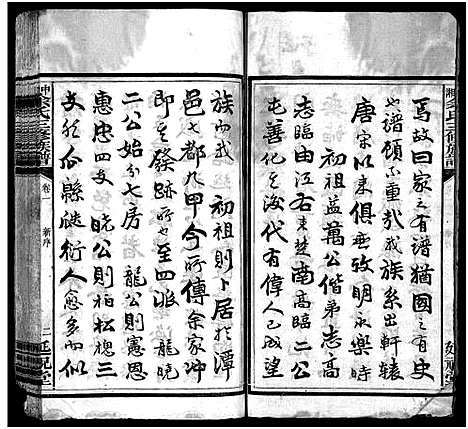 焉故曰家之有譜猶國之有史
也譜顧不重哉我族系出軒轅
唐宋以來俱垂致明永樂時
初祖益萬公偕弟志高
志臨由江右來楚南高臨二公
屯善化之後代有偉人已成望
族而我 初祖則卜居於潭
邑七都九甲今所傳余家沖
即其發跡所也至四派 龍曉
二公始分七房 龍公則憲恩
惠忠四支 曉公則柏松楒三
支於瓜縣縋衍人愈多宜似
余氏三修族譜
卷一
新序
二